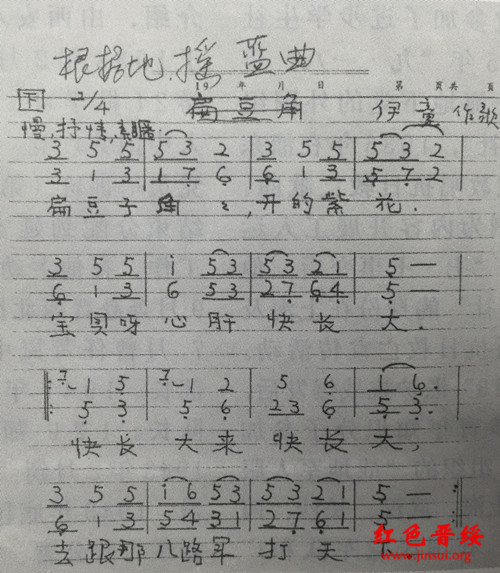 根据地.摇蓝曲
19 年 月 日 第 页共 页
下 2/4 扁豆角 伊童作歌
慢,抒情,
3 5 5 | 5 3 2 | 3 5 5 | 5 3 2
3 1 3 | 1 7 6 | 6 1 3 | 5 7 2
扁豆子角〻,开的紫花.
3 5 5 | i 5 3 | 5 3 2 1 | 5 —
6 1 3 | 6 5 3 | 2 7 6 4 | 5 —
宝贝呀心肝快长大.
7 1 5 | 7 1 2 | 5 6 | 1 6.
5 3 | 5 6 | 2 3 6 | 5 3.
快长大来快长大,
3 5 5 | i 6 5 3 | 5 3 2 1 | 5 — :
6 1 3 | 5 4 3 1 | 2 7 6 1 | 5 — :
去跟那八路军打天下
红色晋绥
www.jinsui.org